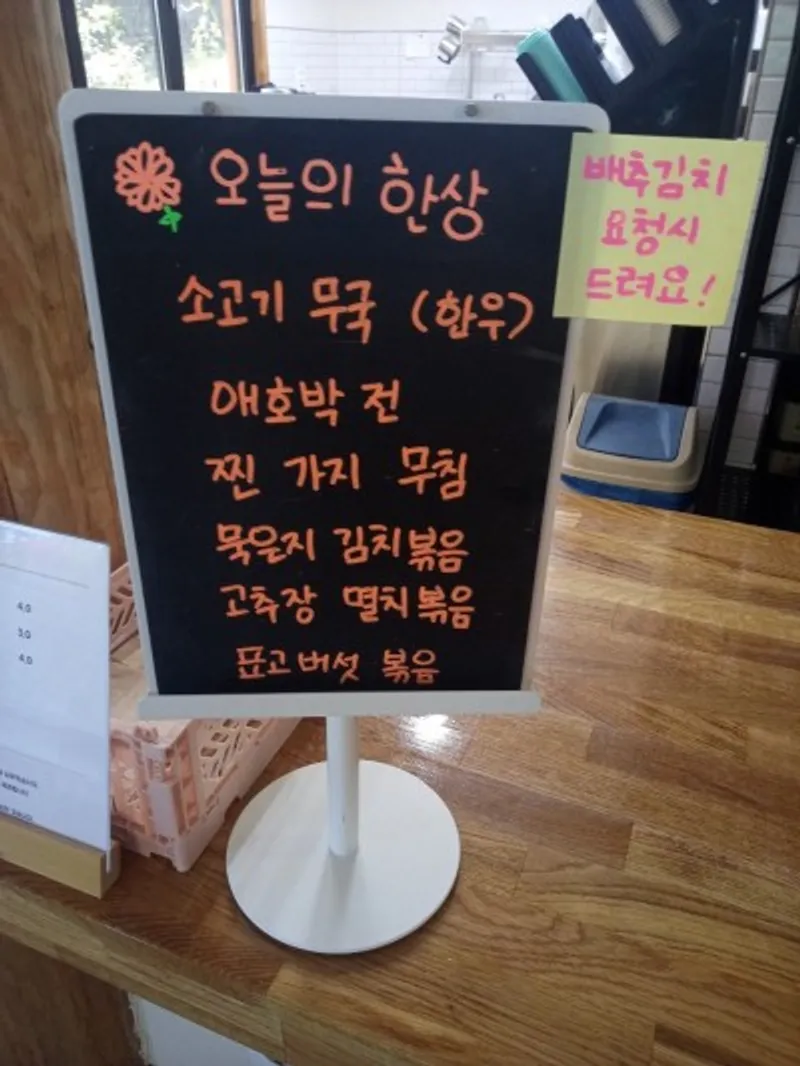 오늘의 한상
소고기 무국 (한우)
애호박 전
찐 가지 무침
묵은지 김치볶음
고추장 멸치볶음
표고버섯 볶음
배추김치
요청시
드려요!
4.0
3.0
4.0